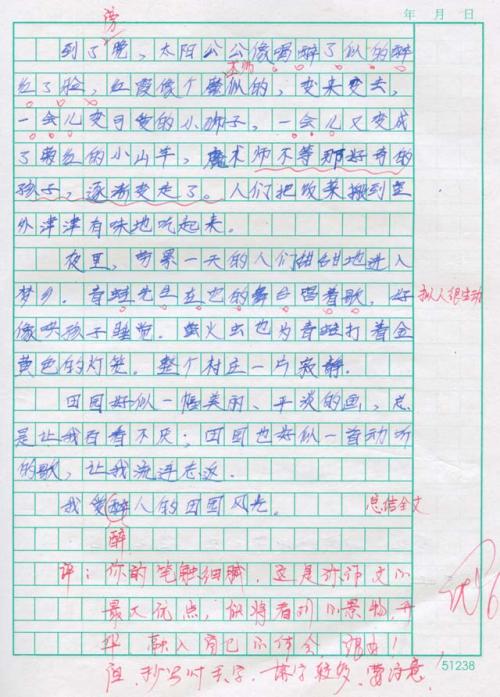 年 月 日
傍
到了晚，太阳公公像喝醉了似的醉
红了脸，红霞像个魔术师似的，变来变去，
一会儿变可爱的小狮子，一会儿又变成
了粉红的小山羊，魔术师不等那好奇的
孩子，逐渐变走了。人们把饭菜搬到室
外津津有味地吃起来。
夜里，劳累一天的人们甜甜地进入
梦乡。青蛙先生在它的舞台唱着歌，好 拟人很生动
像哄孩子睡觉。萤火虫也为青蛙打着金
黄色的灯笼。整个村庄一片寂静。
田园好似一幅美丽、平淡的画，总
是让我百看不厌；田园也好似一首动听
的歌，让我流连忘返。
我爱醉人的田园风光。 总结全文
醉
评：你的笔触细腻，这是你作文的
最大优点，你将看到的景物，
融入自己的体会，很好！
但，抄写时丢字、错字较多，要注意！
优
51238